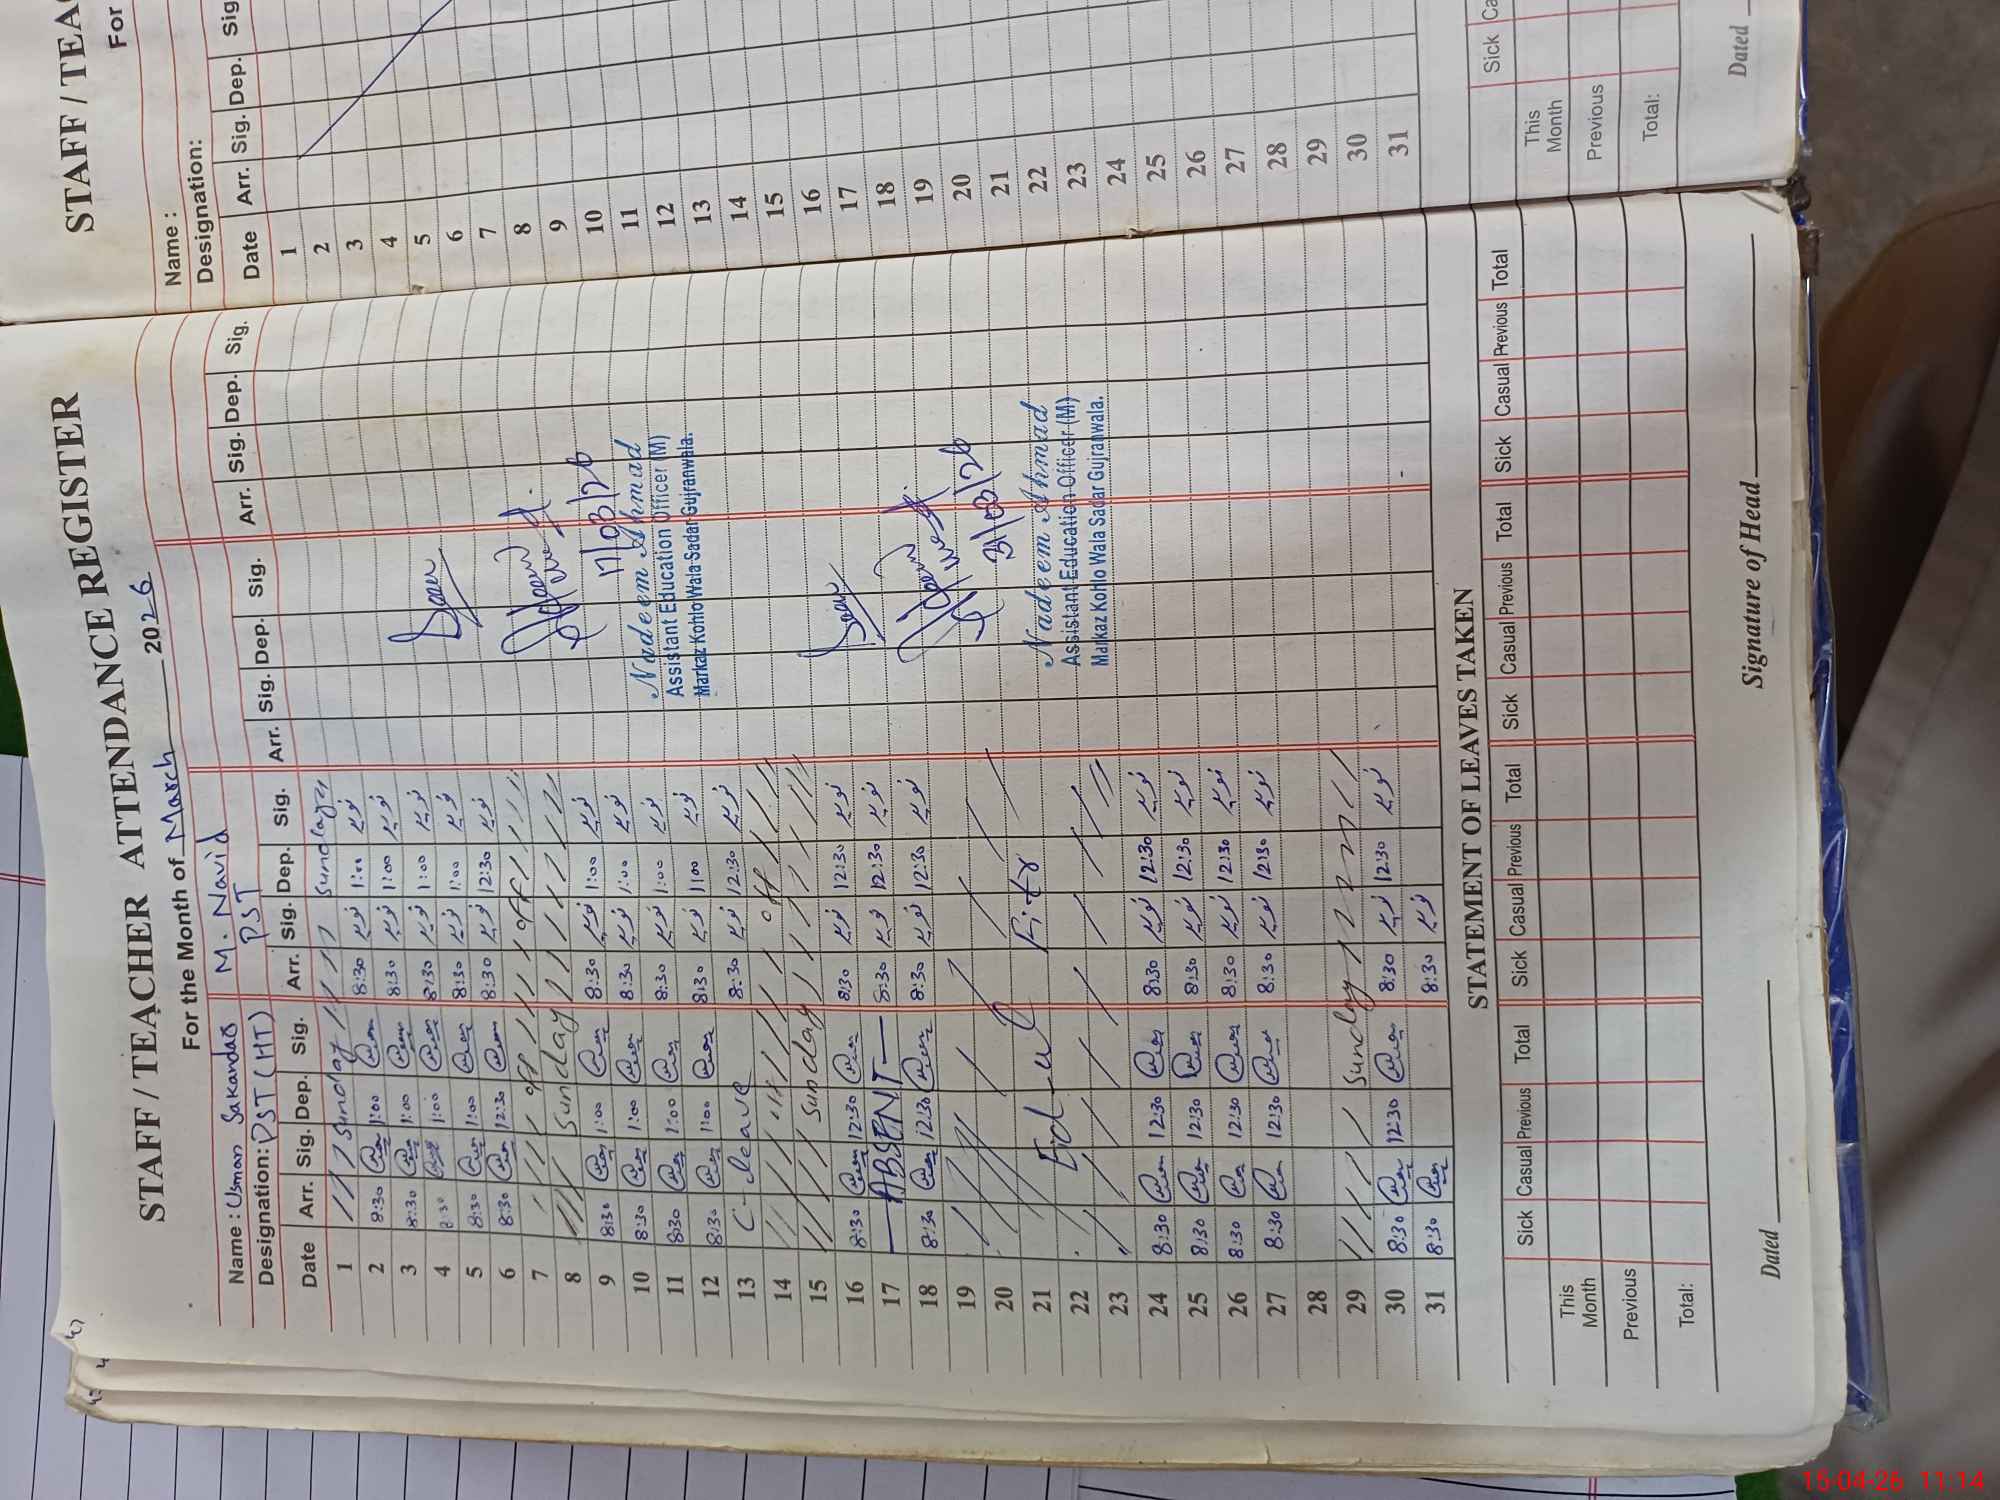 STAFF / TEACHER ATTENDANCE REGISTER
For the Month of March 2026
Name : Usman Sakandar M. Navid
Designation: PST (HT) PST
Date Arr. Sig. Dep. Sig. Arr. Sig. Dep. Sig. Arr. Sig. Dep. Sig. Arr. Sig. Dep. Sig.
1 Sunday Sunday
2 8:30 1:00 8:30 نوید 1:00 نوید
3 8:30 1:00 8:30 نوید 1:00 نوید
4 8:30 1:00 8:30 نوید 1:00 نوید
5 8:30 1:00 8:30 نوید 1:00 نوید
6 8:30 12:30 8:30 نوید 12:30 نوید
7 off off
8 Sunday
9 8:30 1:00 8:30 نوید 1:00 نوید
10 8:30 1:00 8:30 نوید 1:00 نوید
11 8:30 1:00 8:30 نوید 1:00 نوید
12 8:30 1:00 8:30 نوید 1:00 نوید
13 C-leave 8:30 نوید 12:30 نوید
14 off
15 Sunday
16 8:30 12:30 8:30 نوید 12:30 نوید
17 ABSENT 8:30 نوید 12:30 نوید
18 8:30 12:30 8:30 نوید 12:30 نوید
19
20
21 Eid-ul Fitr
22
23
24 8:30 12:30 8:30 نوید 12:30 نوید
25 8:30 12:30 8:30 نوید 12:30 نوید
26 8:30 12:30 8:30 نوید 12:30 نوید
27 8:30 12:30 8:30 نوید 12:30 نوید
28
29 Sunday
30 8:30 12:30 8:30 نوید 12:30 نوید
31 8:30 8:30 نوید
17/03/26
Nadeem Ahmad
Assistant Education Officer (M)
Markaz Kohlo Wala Sadar Gujranwala.
31/03/26
Nadeem Ahmad
Assistant Education Officer (M)
Markaz Kohlo Wala Sadar Gujranwala.
STATEMENT OF LEAVES TAKEN
Sick Casual Previous Total Sick Casual Previous Total Sick Casual Previous Total Sick Casual Previous Total
This Month
Previous
Total:
Dated Signature of Head
STAFF / TEAC
For
Name :
Designation:
Date Arr. Sig. Dep. Sig
1
2
3
4
5
6
7
8
9
10
11
12
13
14
15
16
17
18
19
20
21
22
23
24
25
26
27
28
29
30
31
Sick Ca
This Month
Previous
Total:
Dated
15-04-26 11:14